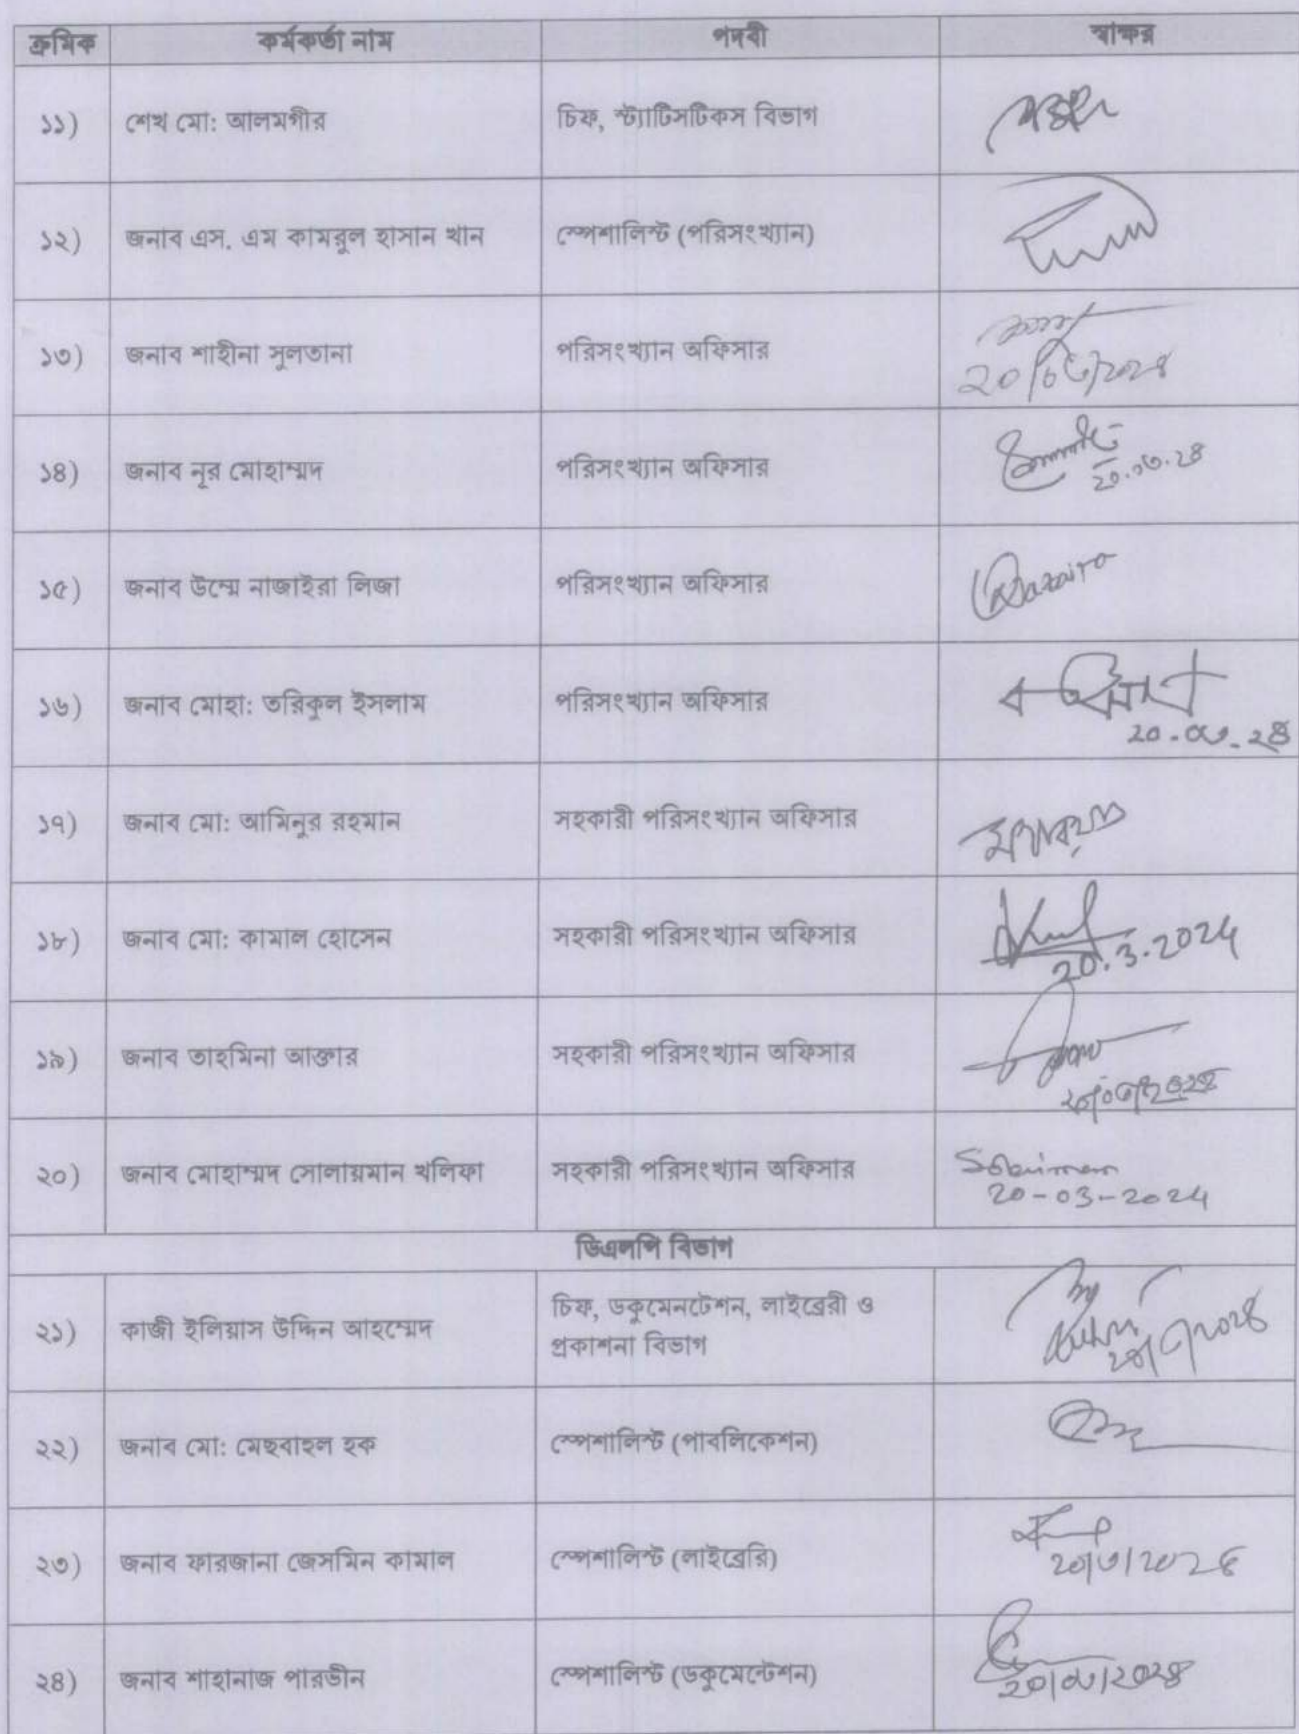 ক্রমিক কর্মকর্তা নাম পদবী স্বাক্ষর
১১) শেখ মো: আলমগীর চিফ, স্ট্যাটিসটিকস বিভাগ
১২) জনাব এস. এম কামরুল হাসান খান স্পেশালিস্ট (পরিসংখ্যান)
১৩) জনাব শাহীনা সুলতানা পরিসংখ্যান অফিসার
২০/০৩/২০২৪
১৪) জনাব নূর মোহাম্মদ পরিসংখ্যান অফিসার
২০.০৩.২৪
১৫) জনাব উম্মে নাজাইরা লিজা পরিসংখ্যান অফিসার
১৬) জনাব মোহা: তরিকুল ইসলাম পরিসংখ্যান অফিসার
২০.০৩.২৪
১৭) জনাব মো: আমিনুর রহমান সহকারী পরিসংখ্যান অফিসার
১৮) জনাব মো: কামাল হোসেন সহকারী পরিসংখ্যান অফিসার
20.3.2024
১৯) জনাব তাহমিনা আক্তার সহকারী পরিসংখ্যান অফিসার
২০/০৩/২০২৪
২০) জনাব মোহাম্মদ সোলায়মান খলিফা সহকারী পরিসংখ্যান অফিসার
20-03-2024
ডিএলপি বিভাগ
২১) কাজী ইলিয়াস উদ্দিন আহম্মেদ চিফ, ডকুমেনটেশন, লাইব্রেরী ও
প্রকাশনা বিভাগ
২২) জনাব মো: মেছবাহুল হক স্পেশালিস্ট (পাবলিকেশন)
২৩) জনাব ফারজানা জেসমিন কামাল স্পেশালিস্ট (লাইব্রেরি)
২০/৩/২০২৪
২৪) জনাব শাহানাজ পারভীন স্পেশালিস্ট (ডকুমেন্টেশন)
২০/০৩/২০২৪